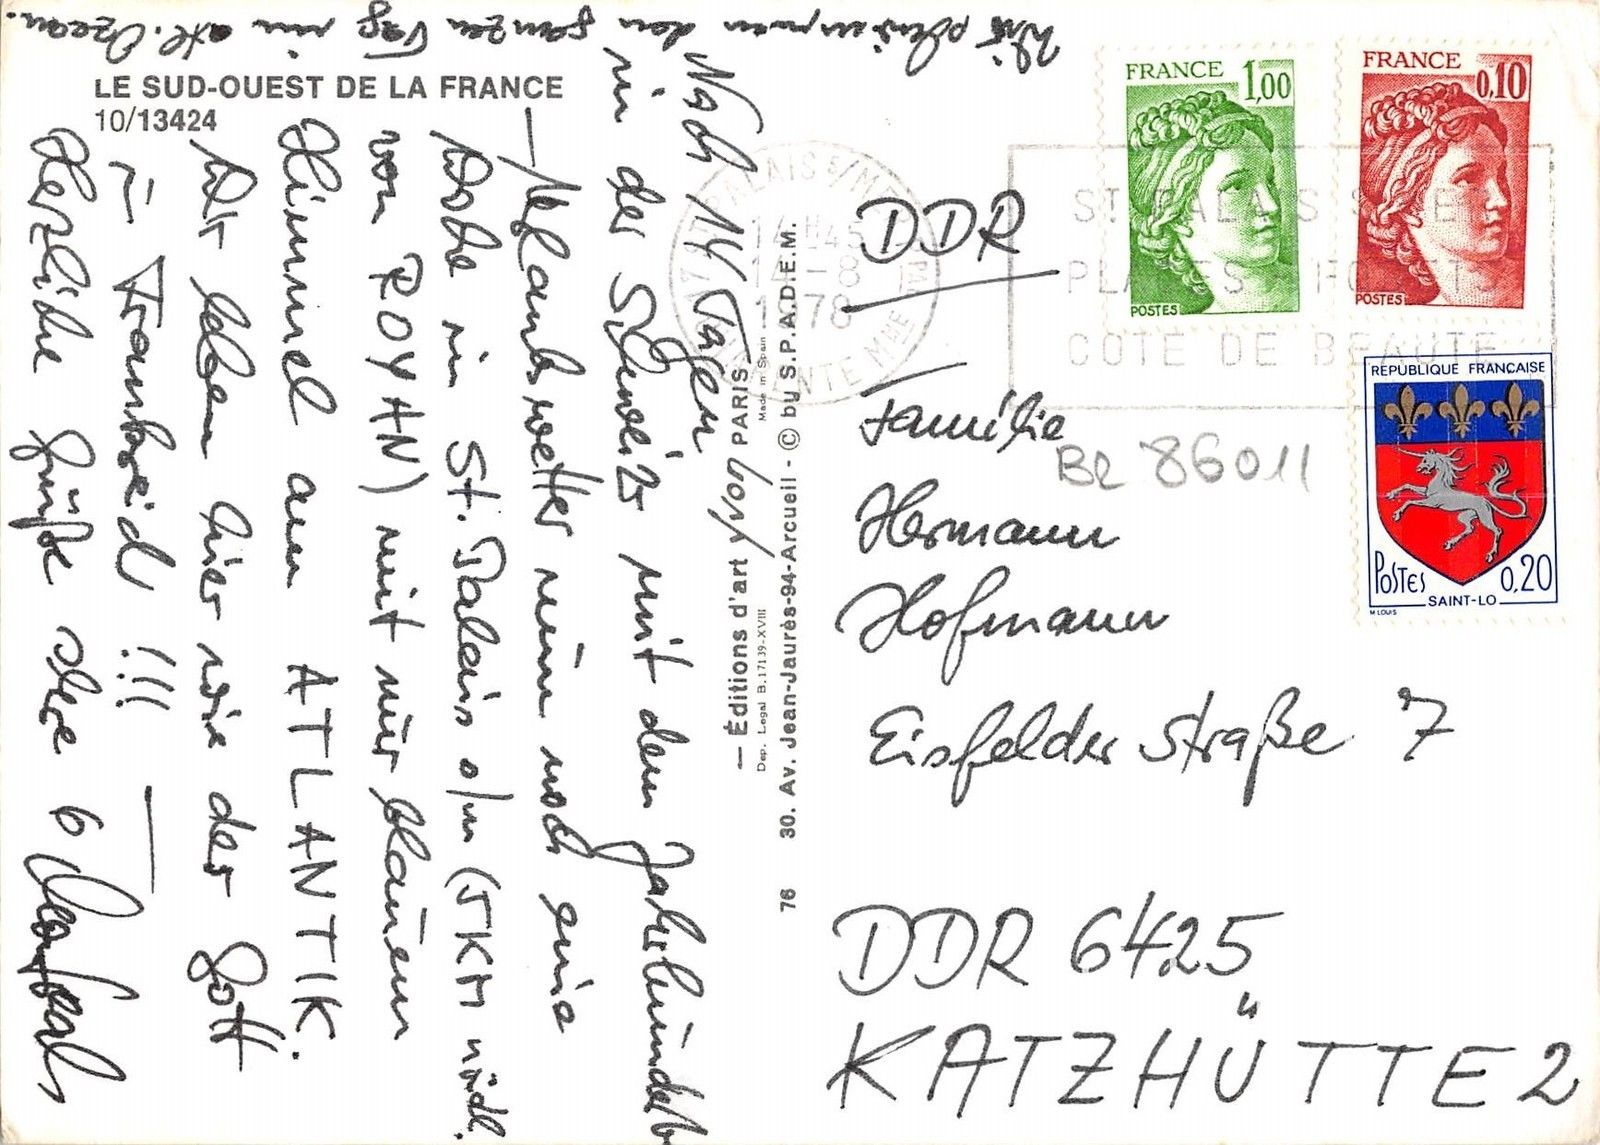 LE SUD-OUEST DE LA FRANCE
10/13424
Nach 14 Tagen
in der Schweiz mit dem Jahrhundert
– Urlaubswetter nun noch eine
Woche in St. Palais s/m (5 KM nördl.
von ROYAN) mit nur blauem
Himmel am ATLANTIK.
Wir leben hier wie der Gott
in Frankreich !!!
Herzliche Grüße
Wir planschen den ganzen Tag im atl. Ozean.
— Éditions d'art yvon PARIS
Dep. Legal B.17139-XVIII
Made in Spain
76 30. Av. Jean-Jaurès-94-Arcueil - © by S.P.A.D.E.M.
DDR
Familie
Hermann
Hofmann
Eisfelder Straße 7
DDR 6425
KATZHÜTTE 2
BL 86011
FRANCE 1,00
POSTES
FRANCE 0,10
POSTES
RÉPUBLIQUE FRANÇAISE
POSTES 0,20
SAINT-LO
M LOUIS
17 ST PALAIS S/MER
14H45
14-8
1978
CHARENTE Mme
ST PALAIS S MER
PLAGES HOTELS
COTE DE BEAUTE